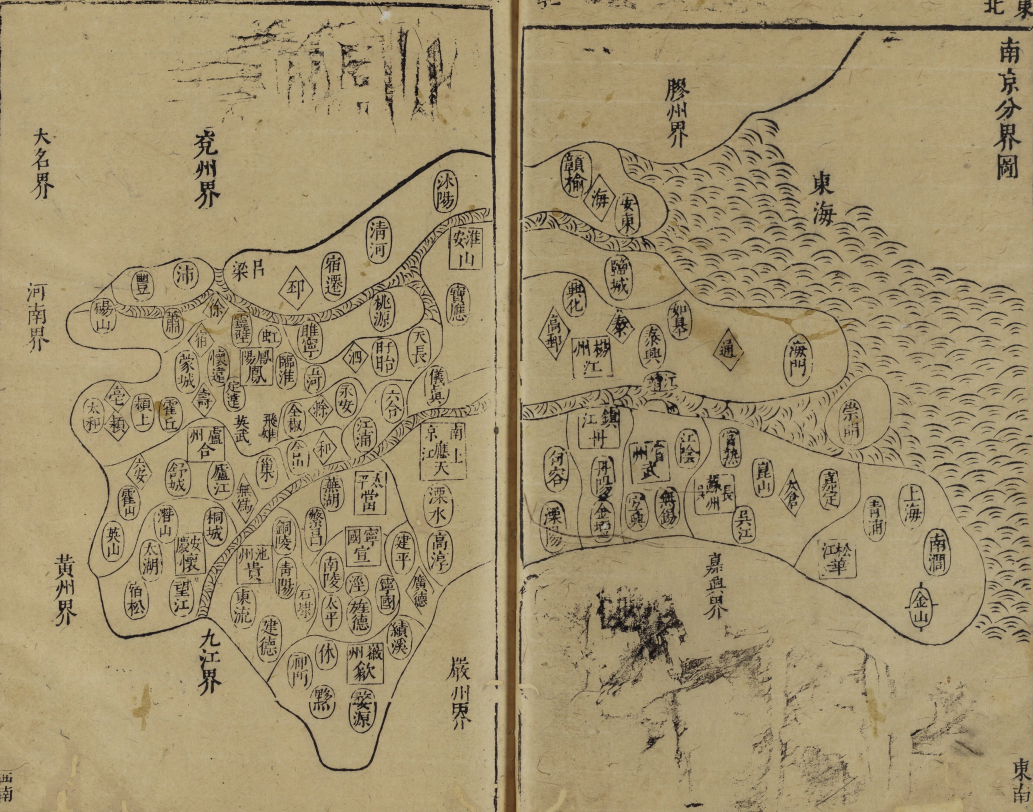 南京分界圖
東
北
膠州界
東海
贛榆
海
安東
鹽城
興化
高郵
泰
揚州
江
如皋
泰興
通
海門
靖江
崇明
鎮江
丹
句容
丹陽
金壇
溧陽
常州
武
江陰
宜興
無錫
常熟
蘇州
長
吳
吳江
崑山
太倉
嘉定
青浦
上海
松江
華
南
金山
嘉興界
東南
大名界
兗州界
沭陽
清河
淮安
山
宿遷
邳
呂梁
沛
豐
碭山
河南界
蕭
徐
宿
靈璧
虹
睢寧
桃源
寶應
泗
盱眙
天長
蒙城
懷遠
鳳陽
鳳
臨淮
五河
定遠
壽
亳
太和
潁
潁上
霍丘
英武
飛雄
全椒
滁
來安
六合
儀真
南京
應天
上
江
江浦
和
含山
巢
廬州
合
六安
舒城
廬江
無為
霍山
英山
潛山
桐城
太湖
安慶
懷
望江
宿松
黃州界
九江界
蕪湖
太平
當
溧水
高淳
繁昌
銅陵
池州
貴
青陽
寧國
宣
建平
廣德
南陵
涇
寧國
石埭
太平
旌德
東流
建德
績溪
祁門
休
徽州
歙
黟
婺源
嚴州界
西南